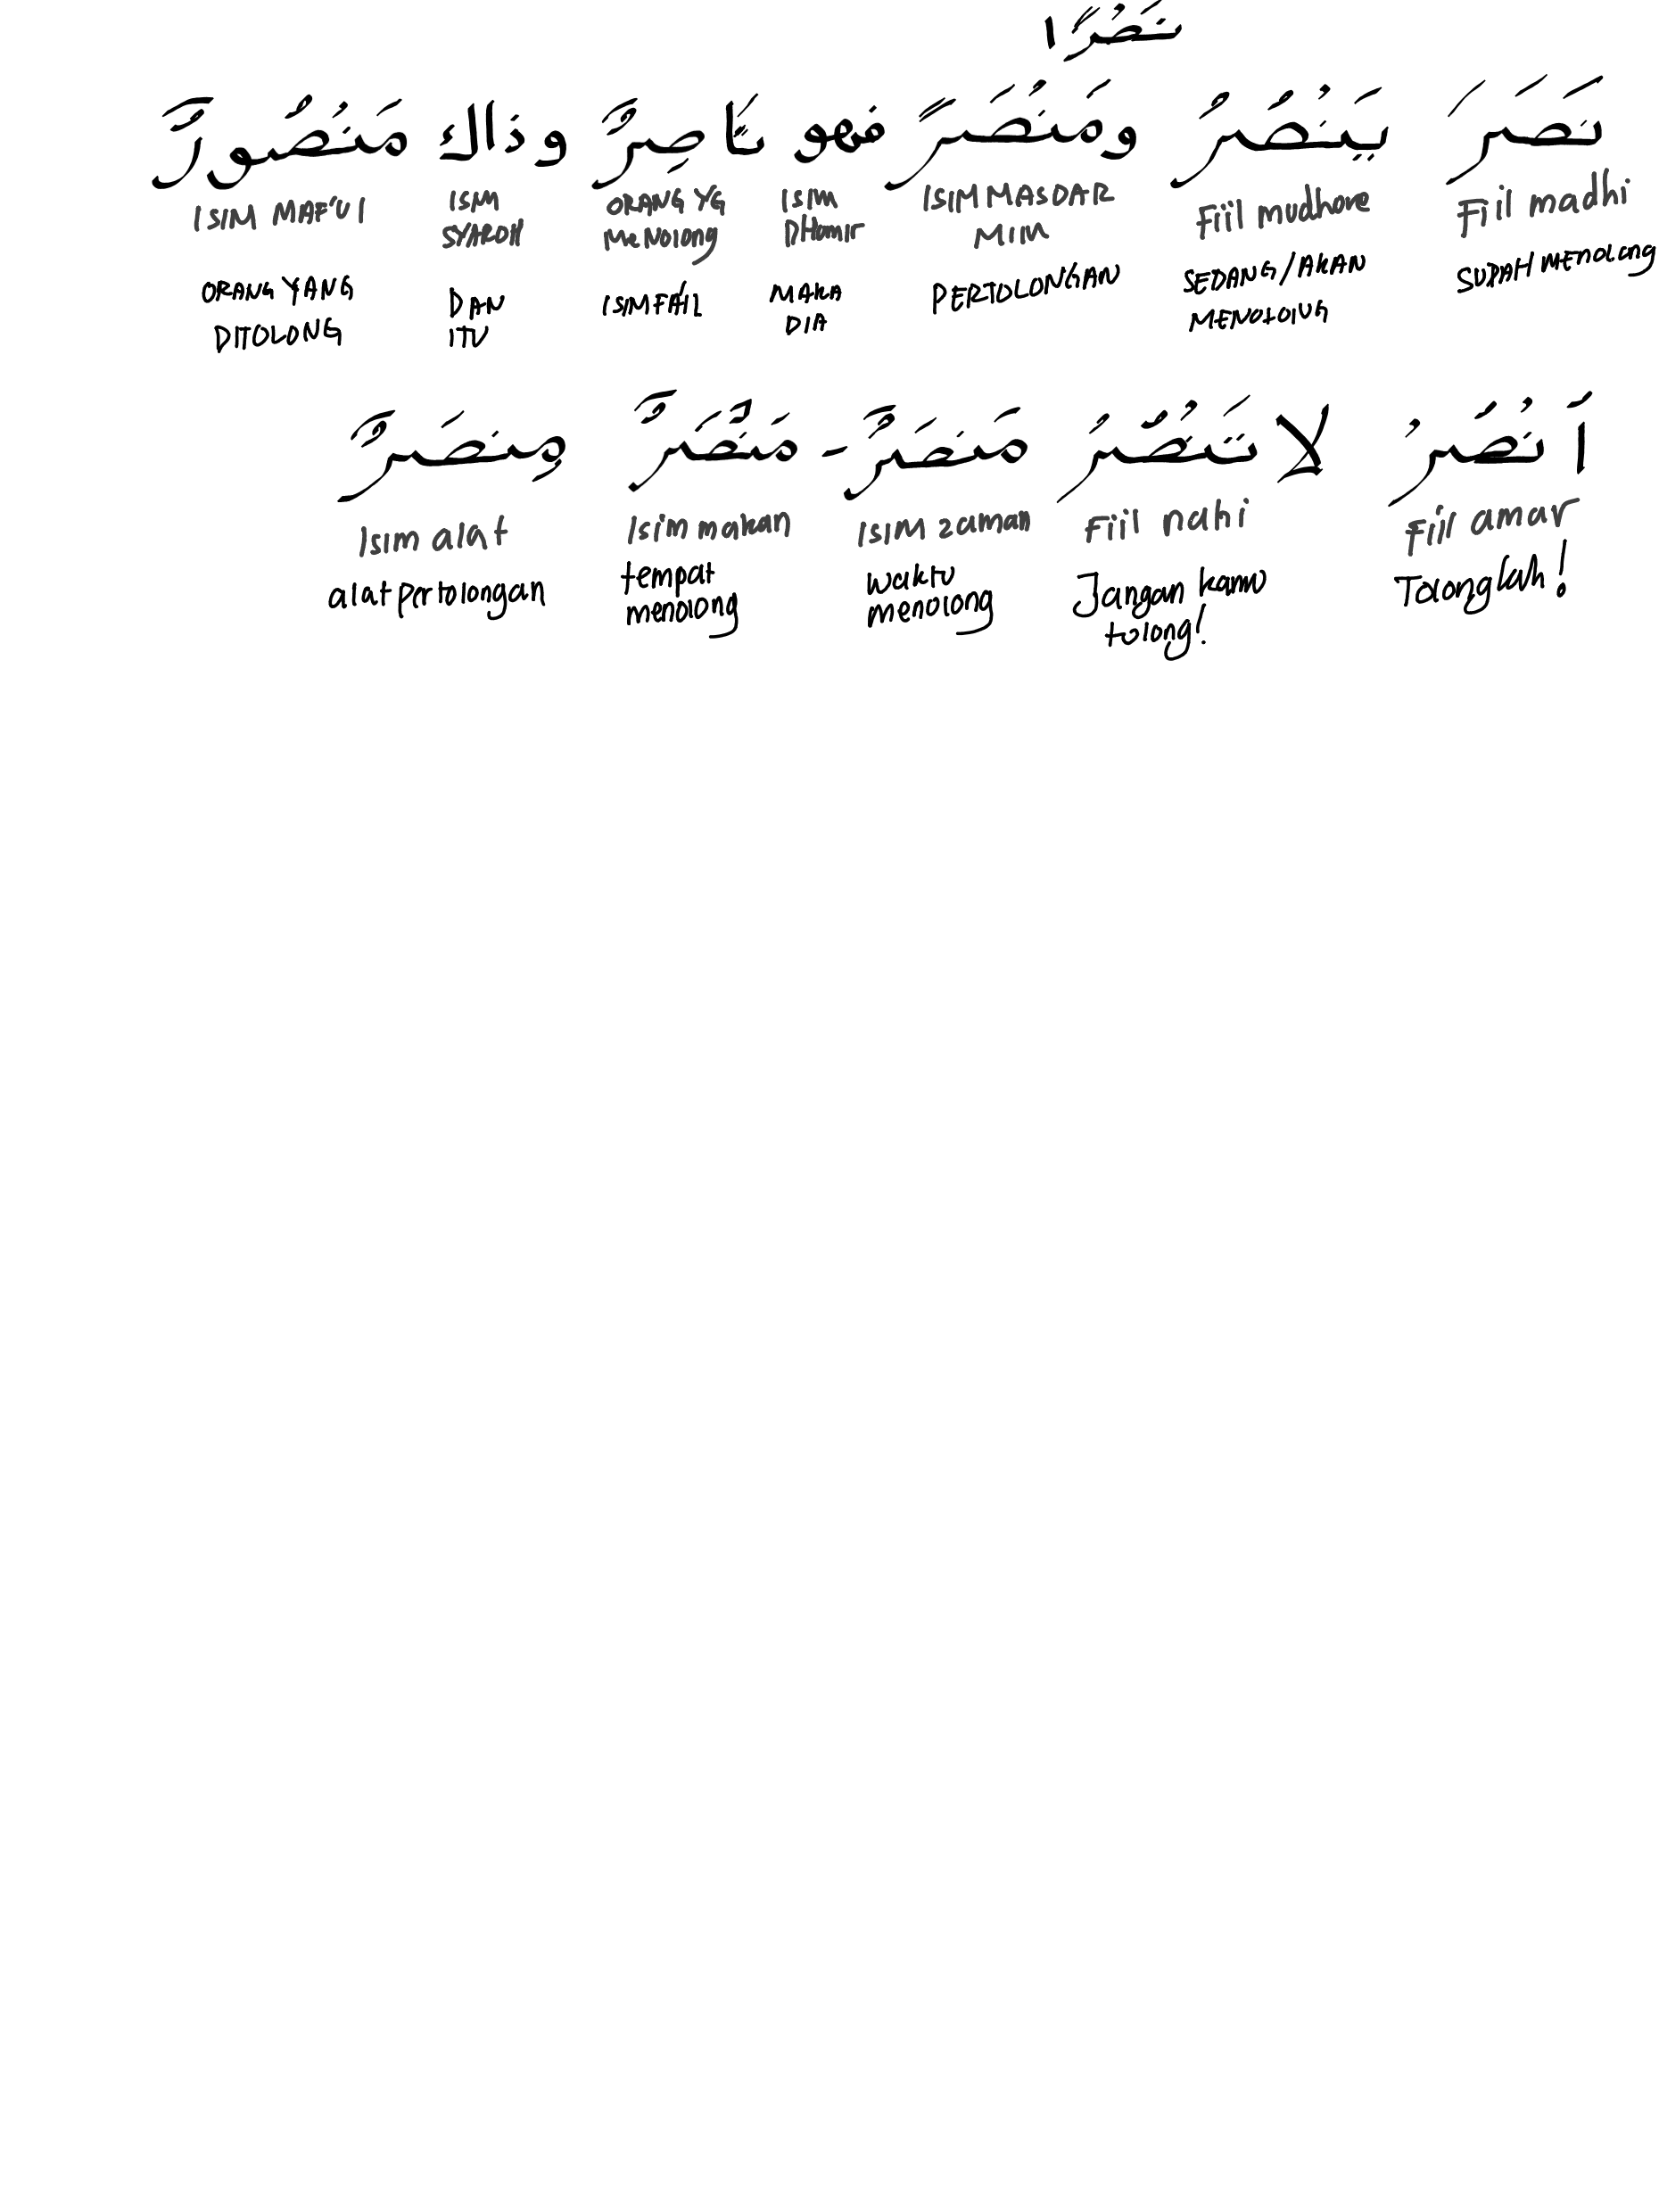 نَصْرًا
نَصَرَ يَنْصُرُ ومَنْصَرً فهو نَاصِرٌ وذاك مَنْصُورٌ
Fiil madhi Fiil mudhore ISIM MASDAR MIM ISIM DHomir ORANG YG MeNolong ISM SYAROH ISIM MAF'Ul
SUDAH MENOLONG SEDANG/AKAN MENOLOIUG PERTOLONGAN MAKA DIA ISIM FA'IL DAN ITU ORANG YANG DITOLONG
اَنْصُرْ لا تَنْصُرْ مَنصَرٌ - مَنْصَرٌ مِنصَرٌ
Fiil amar Fiil nahi Isim zaman Isim makan Isim alat
Tolonglah! Jangan kamu tolong! waktu menolong tempat menolong alat pertolongan